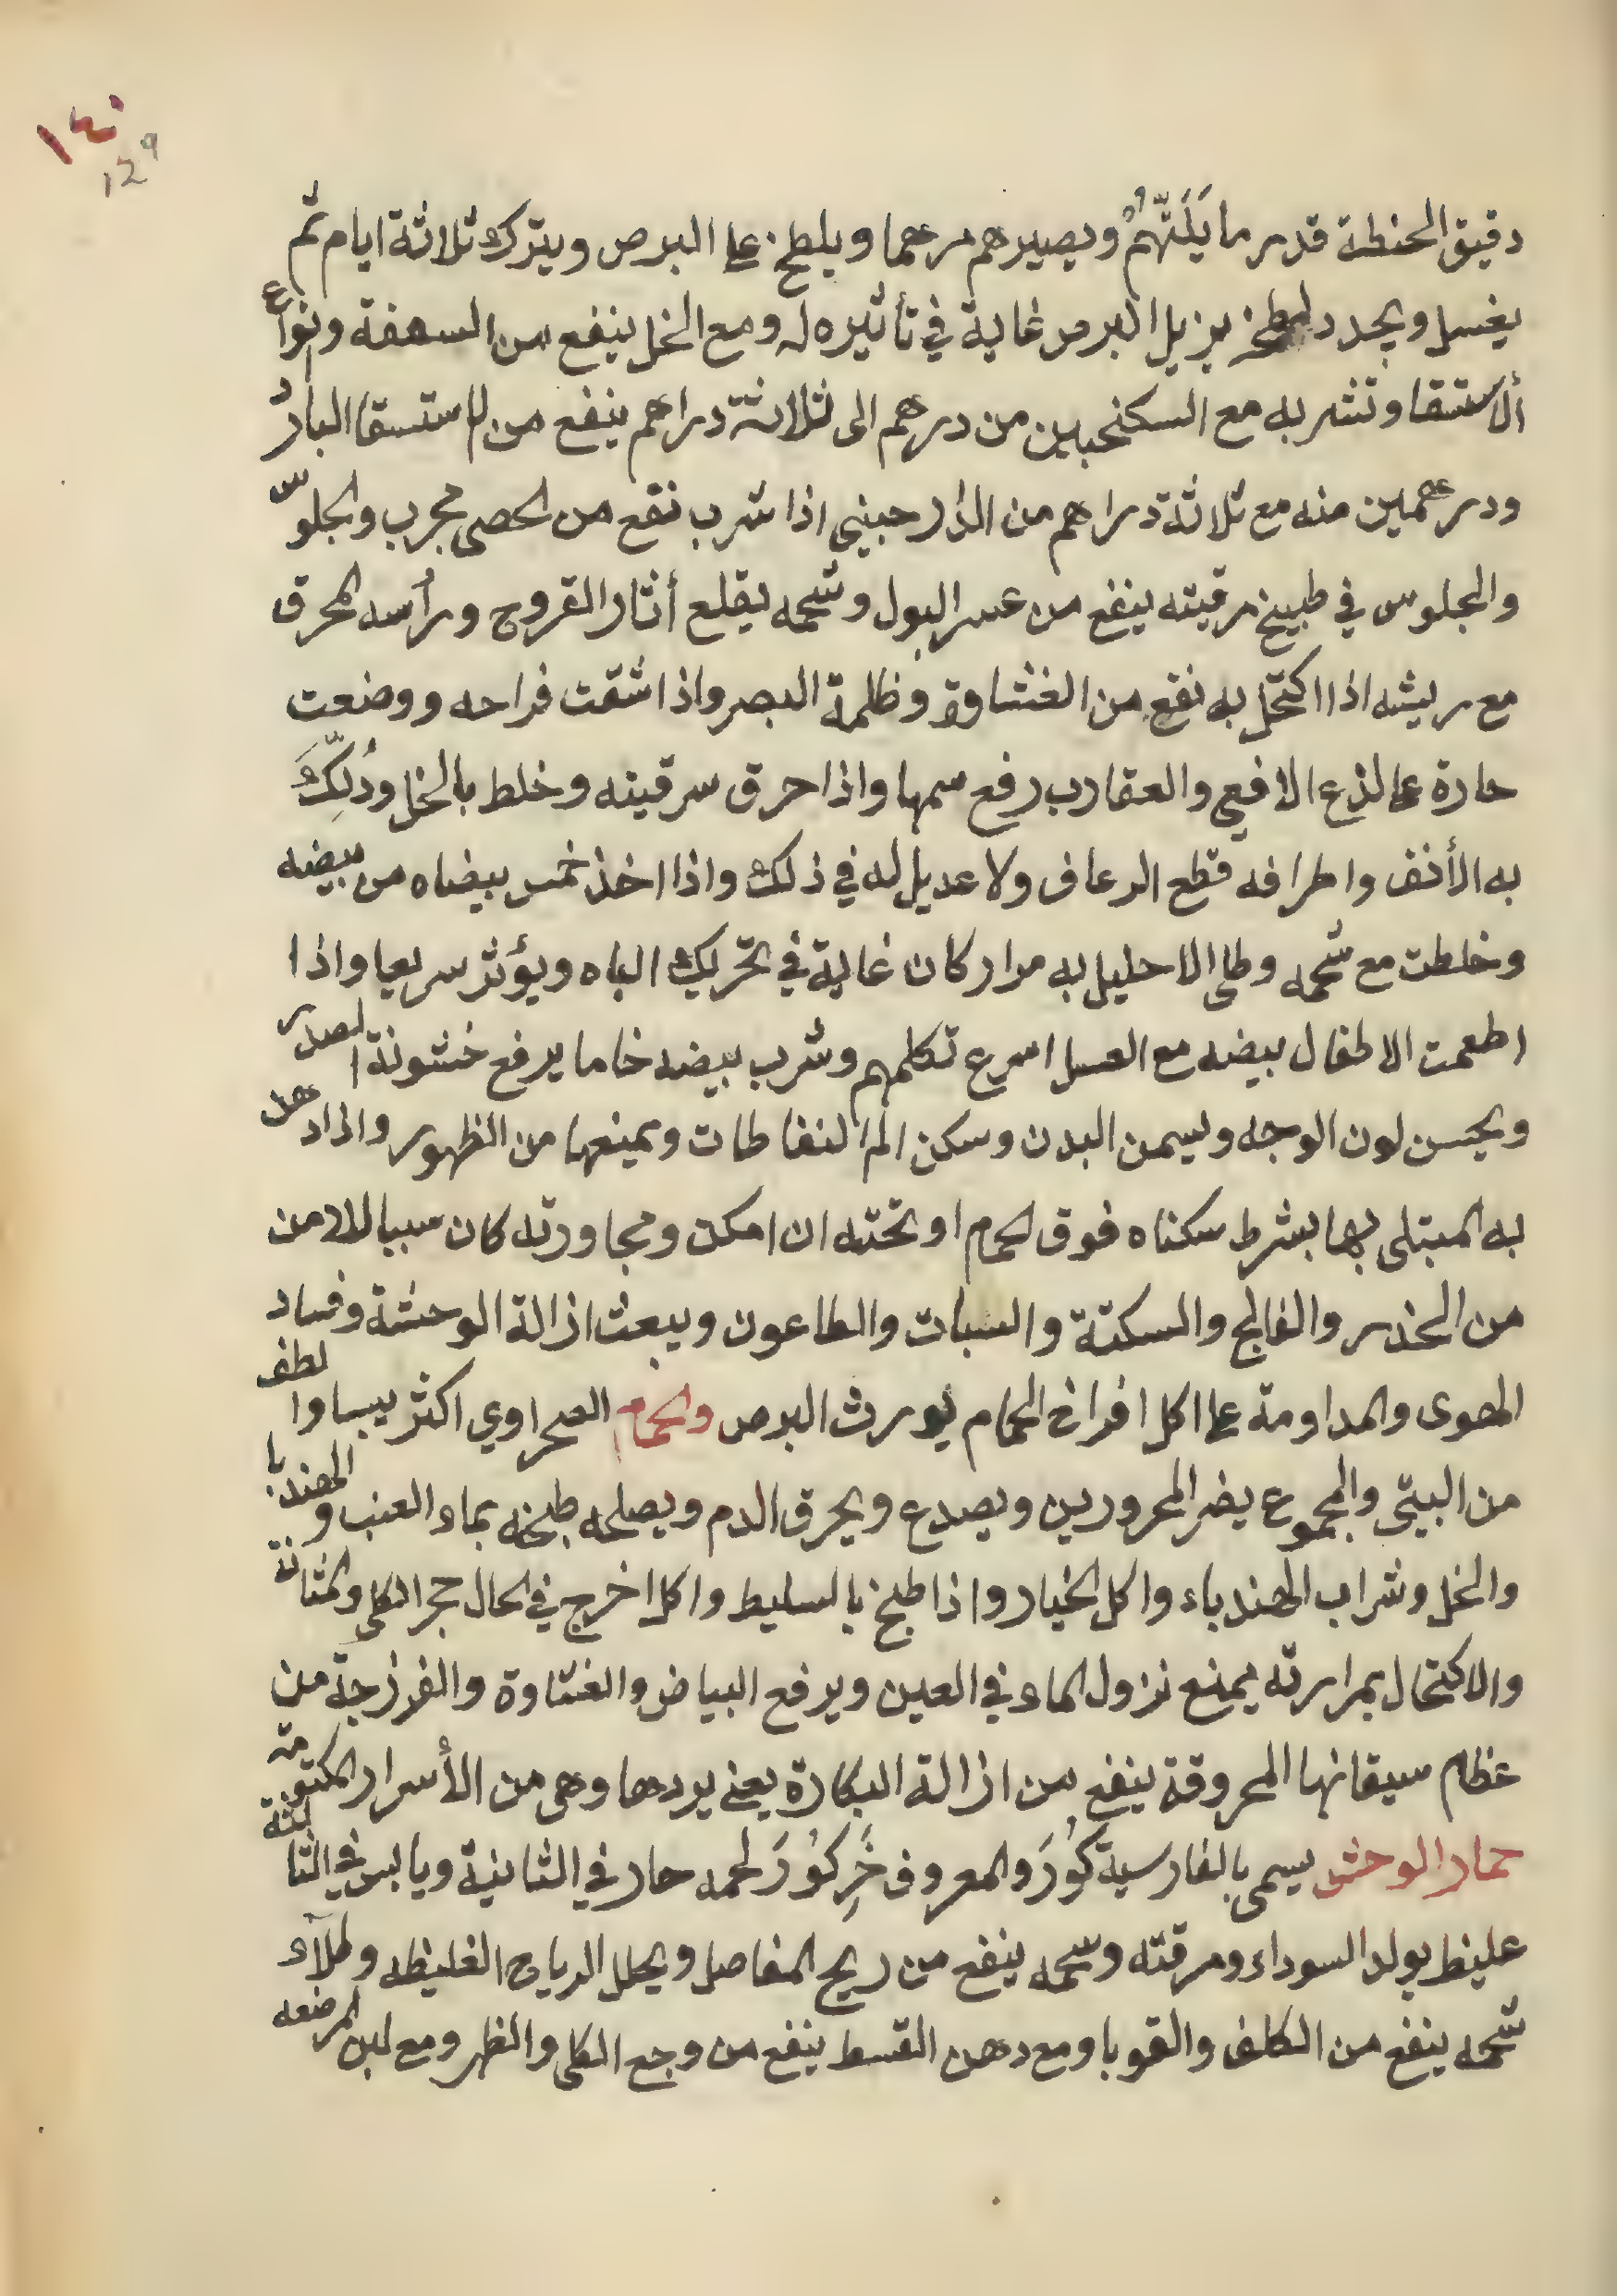 ١٤٠
١٤٩
دقيق الحنطة قدر ما يَلَتَّهُمْ ويصيرهم مرهما ويلطخ على البرص ويترك ثلاثة ايام ثم
يغسل ويجدد لطخه يزيل البرص غاية في تأثيره له ومع الخل ينفع من السعفة وانواع
ألاستسقا وتشربه مع السكنجبين من درهم الى ثلاثة دراهم ينفع من الاستسقا البارد
ودرهمين منه مع ثلاثة دراهم من الدارجيني اذا شرب نفع من الحصى مجرب والجلوس
والجلوس في طبيخ مرقيته ينفع من عسر البول وشحمه يقلع أثار القروح ورأسه المحرق
مع ريشه اذا اكتحل به نفع من الغشاوة وظلمة البصر واذا شقت فراخه ووضعت
حارة على لذع الافعى والعقارب رفع سمها واذا حرق سرقينه وخلط بالخل ودُلِّكَ
به الأنف واطرافه قطع الرعاف ولا عديل له في ذلك واذا اخذ خمس بيضاه من بيضه
وخلطت مع شحمه وطلى الاحليل به مرار كان غاية في تحريك الباه ويؤثر سريعا واذا
اطعمت الاطفال بيضه مع العسل اسرع تكلمهم وشرب بيضه خاما يرفع خشونة الصدر
ويحسن لون الوجه ويسمن البدن وسكن الم النفاطات ويمنعها من الظهور واذا دهن
به المبتلى بها بشرط سكناه فوق الحمام او تحته ان امكن ومجاورته كان سببا للامن
من الخدر والفالج والسكتة والسبات والطاعون ويبعث ازالة الوحشة وفساد
الهوى والمداومة على اكل افراخ الحمام يورث البرص والحمام الصحراوي اكثر يبسا والطف
من البيتي والمجموع يضر المحرورين ويصدع ويحرق الدم ويصلحه طبخه بماء العنب والهندبا
والخل وشراب الهندباء واكل الخيار واذا طبخ بالسليط واكل اخرج في الحال حجر الكلى والمثانة
والاكتحال بمرارته يمنع نزول الماء في العين ويرفع البياض والغشاوة والفرزجة من
عظام سيقانها المحروقة ينفع من ازالة البكارة يعني يردها وهي من الأسرار المكتومة
حمار الوحش يسمى بالفارسية كُورَ والمعروف خَرِكُورَ لحمه حار في الثانية ويابس في الثالثة
غليظ يولد السوداء ومرقته وشحمه ينفع من ريح المفاصل ويحلل الرياح الغليظه وطلآء
شحمه ينفع من الكلف والقوبا ومع دهن القسط ينفع من وجع الكلى والظهر ومع لبن المرضعه